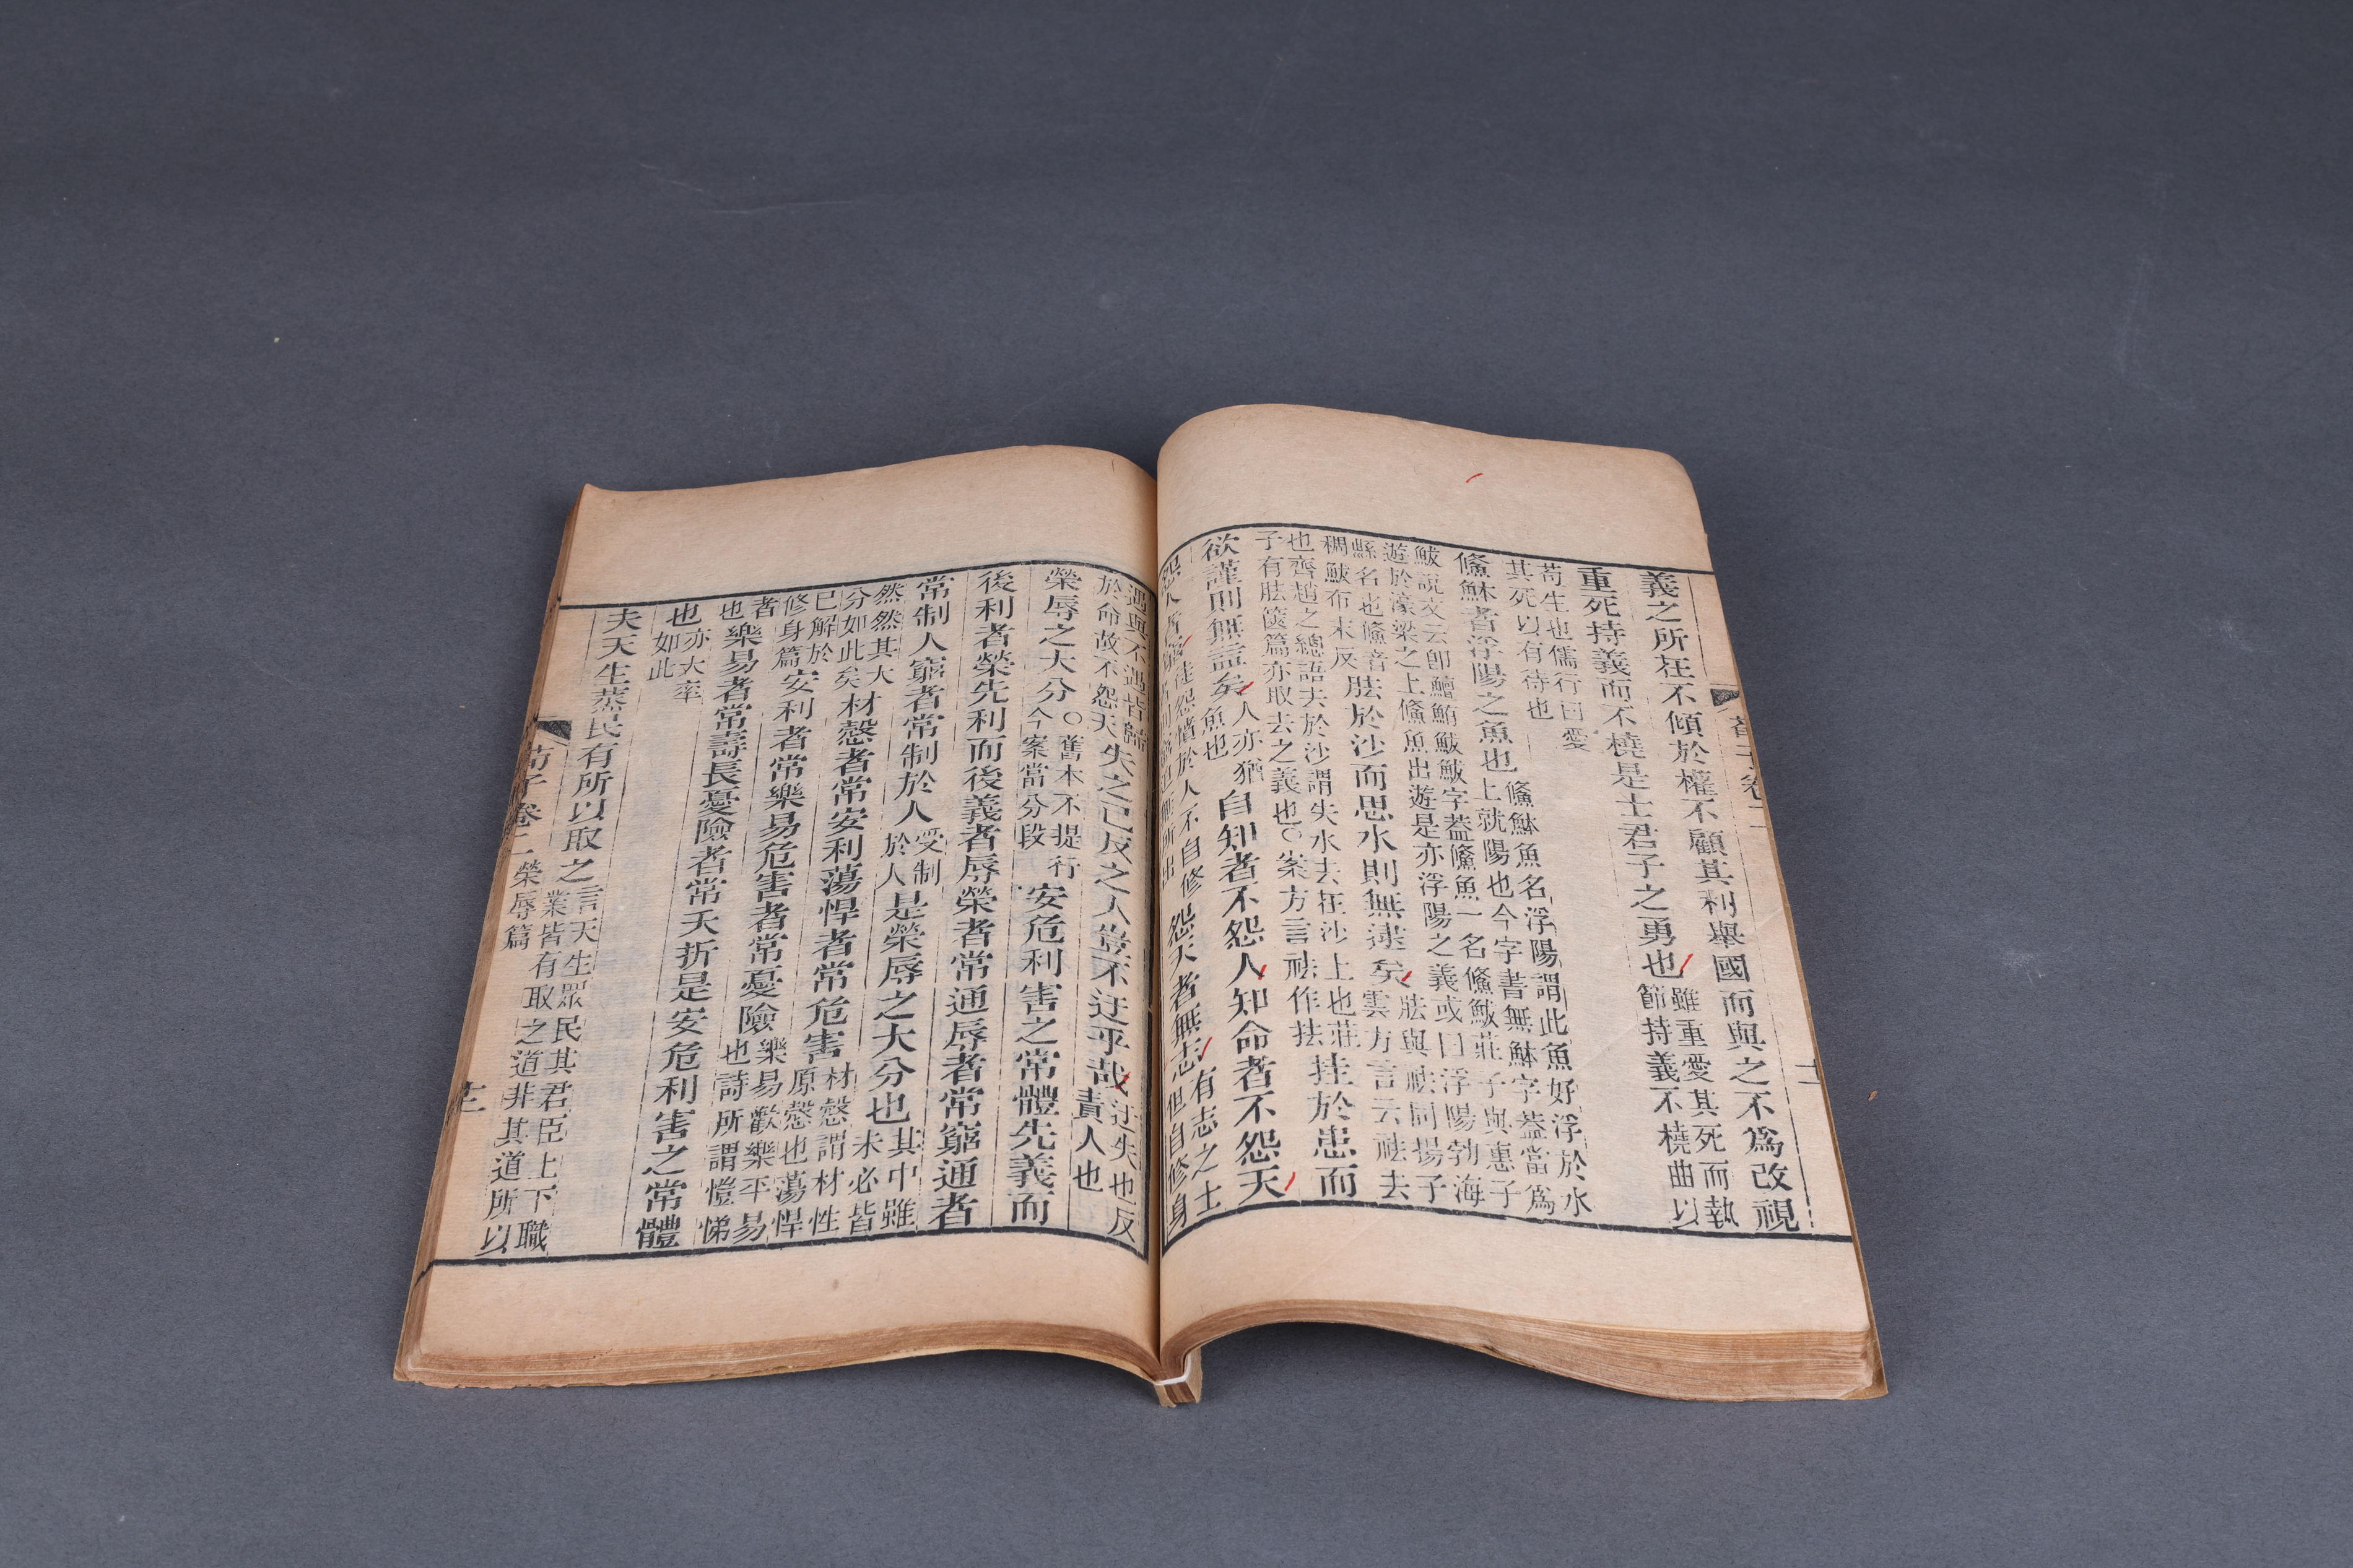 荀子卷二
十一
義之所在不傾於權不顧其利舉國而與之不為改視
重死持義而不橈是士君子之勇也雖重愛其死而執節持義不橈曲以
苟生也儒行曰愛其死以有待也
鯈䱁者浮陽之魚也鯈䱁魚名浮陽謂此魚好浮於水上就陽也今字書無䱁字蓋當為
鮁說文云即鱣鮪鮁鮁字蓋鯈魚一名鯈鮁莊子與惠子遊於濠梁之上鯈魚出遊是亦浮陽之義或曰浮陽勃海
縣名也鯈音稠鮁布末反胠於沙而思水則無逮矣胠與祛同揚子雲方言云祛去
也齊趙之總語去於沙謂失水去在沙上也莊子有胠篋篇亦取去之義也○案方言祛作抾挂於患而
欲謹則無益矣人亦猶魚也自知者不怨人知命者不怨天
怨人者窮徒怨憤於人不自修怨天者無志有志之士但自修身
遇與不遇皆歸於命故不怨天失之己反之人豈不迂乎哉迂失也反責人也
榮辱之大分○舊本不提行今案當分段安危利害之常體先義而
後利者榮先利而後義者辱榮者常通辱者常窮通者
常制人窮者常制於人受制於人是榮辱之大分也其中雖未必皆
然然其大分如此矣材愨者常安利蕩悍者常危害材愨謂材性原愨也蕩悍
已解於修身篇安利者常樂易危害者常憂險樂易歡樂平易也詩所謂愷悌
者也樂易者常壽長憂險者常夭折是安危利害之常體
也亦大率如此
夫天生蒸民有所以取之言天生眾民其君臣上下職業皆有取之道非其道所以
荀子卷二 榮辱篇